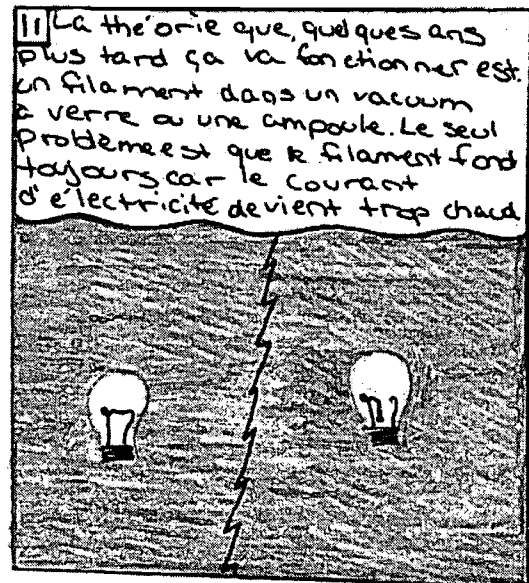 11 La théorie que, quelques ans
plus tard ça va fonctionner est
un filament dans un vacuum
à verre ou une ampoule. Le seul
problème est que le filament fond
toujours car le courant
d'électricité devient trop chaud